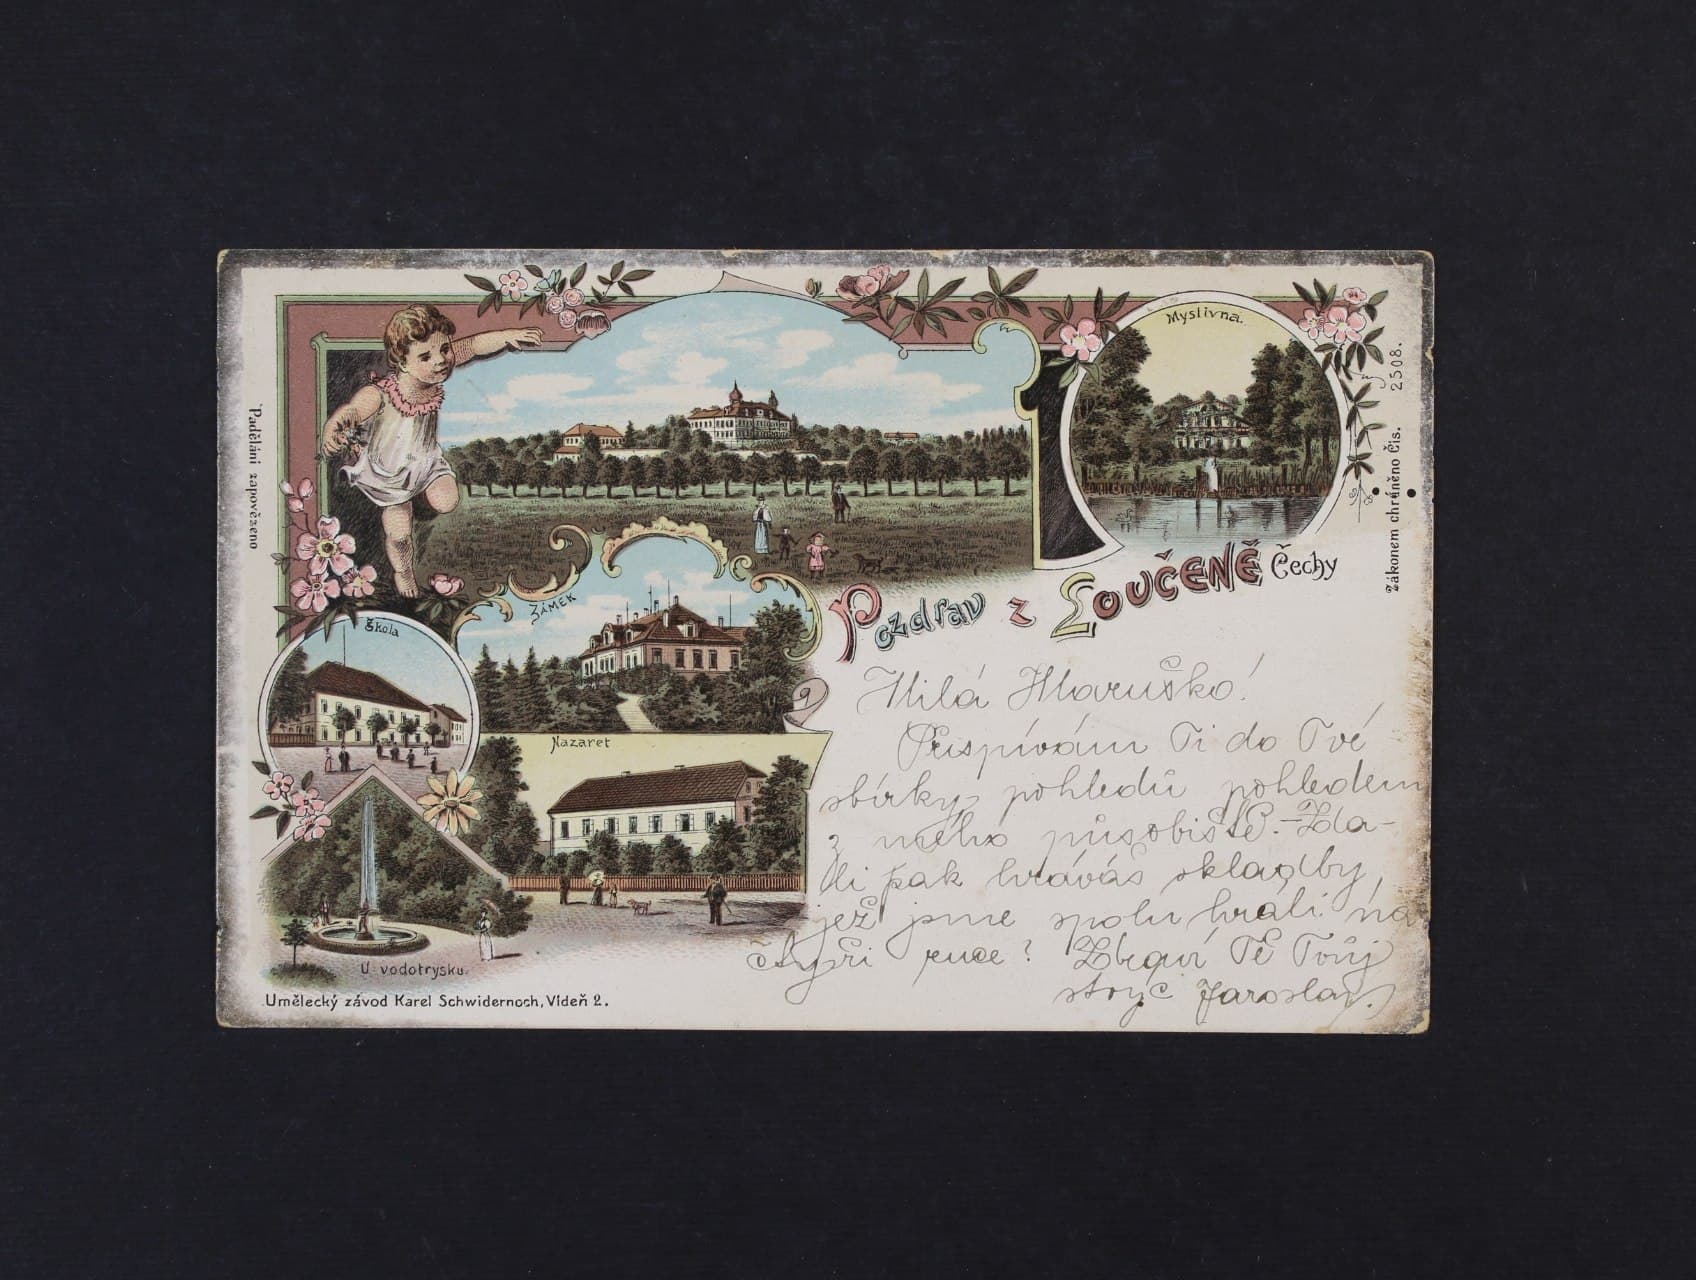 Myslivna.
Zákonem chráněno Čís. 2508.
Padělání zapovězeno
Pozdrav z Loučeně Čechy
Zámek
Škola
Nazaret
U vodotrysku.
Umělecký závod Karel Schwidernoch, Vídeň 2.
Milá Maruško!
Přispívám Ti do Tvé
sbírky pohledů pohledem
z mého působiště. – Zda-
li pak hráváš skladby,
jež jsme spolu hráli na
čtyři ruce? Zdraví Tě Tvůj
strýc Jaroslav.